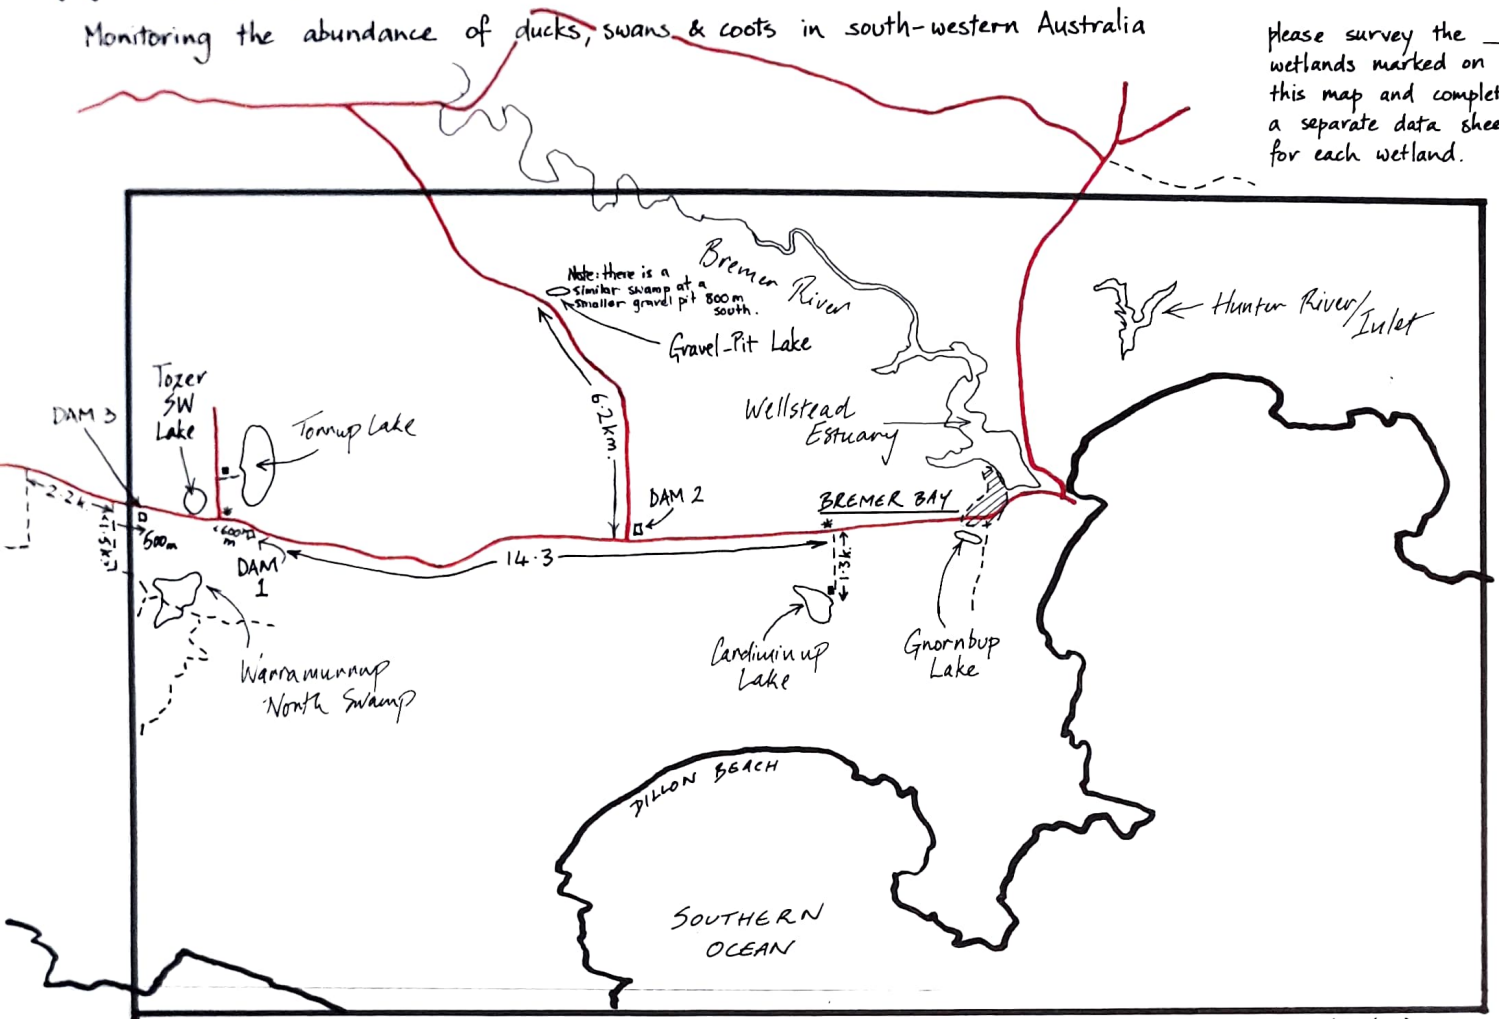 Monitoring the abundance of ducks, swans & coots in south-western Australia
please survey the
wetlands marked on
this map and complet
a separate data shee
for each wetland.
Bremer
River
Note: there is a
similar swamp at a
smaller gravel pit 800m
south.
Gravel-Pit Lake
Hunter River/
Inlet
Tozer
SW
Lake
DAM 3
Tonnup Lake
6.2km.
Wellstead
Estuary
2.2k.
1.5k
500m
600
m
DAM
1
DAM 2
BREMER BAY
14.3
1.3k.
Warramurrup
North Swamp
Candiminup
Lake
Gnornbup
Lake
DILLON BEACH
SOUTHERN
OCEAN